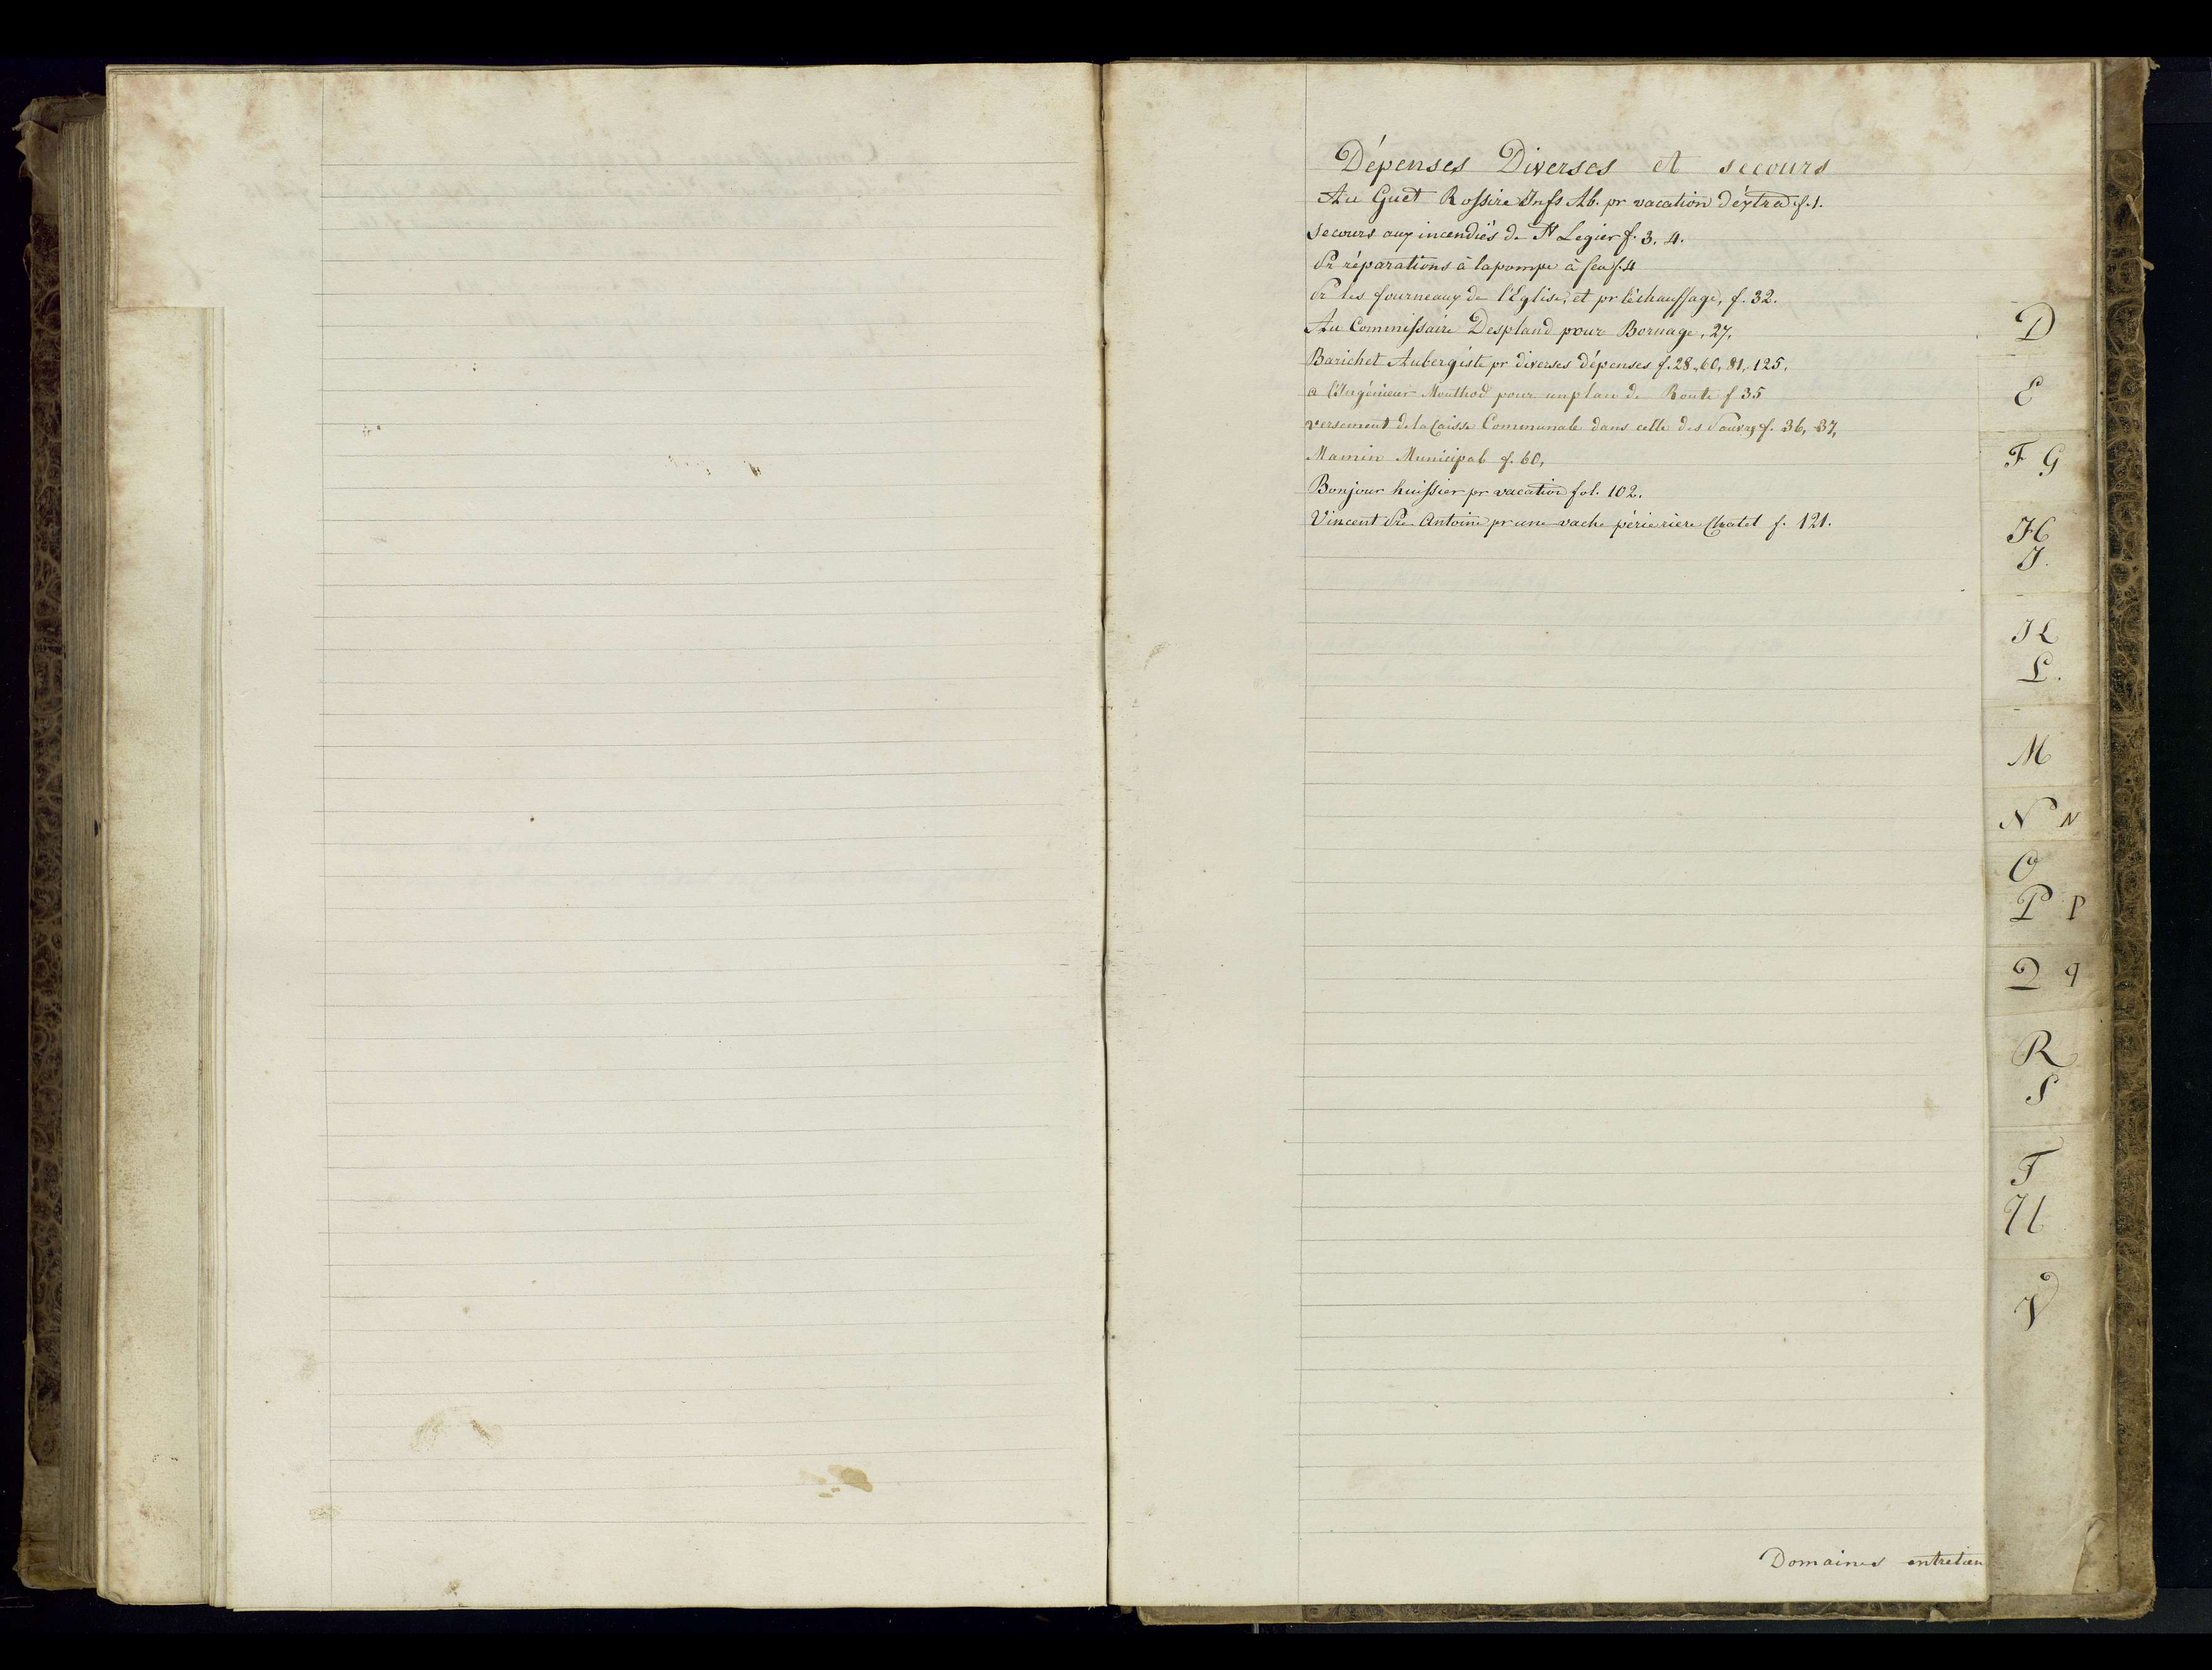 Dépenses Diverses et secours
Au Guet Rossire Ab. pr vacation d'extra f. 1.
Secours aux incendiés de St Legier f. 3. 4.
Pr réparations à la pompe à feu f. 4
Pr les fourneaux de l'Eglise, et pr l'échauffage, f. 32.
Au Commissaire Despland pour Bornage, 27.
Barichet Aubergiste pr diverses dépenses f. 28, 60, 81, 125.
a l'Ingénieur Mouthod pour un plan de Route f 35
versement de la Caisse Communale dans celle des Pauvres f. 36, 37,
Mamin Municipal f. 60,
Bonjour huissier pr vacation fol. 102.
Vincent Pre Antoine pr une vache périe riere Chatel f. 121.
Domaines entretien
D
E
F G
H
J.
K
L.
M
N N
O
P P
Q q
R
S
T
U
V